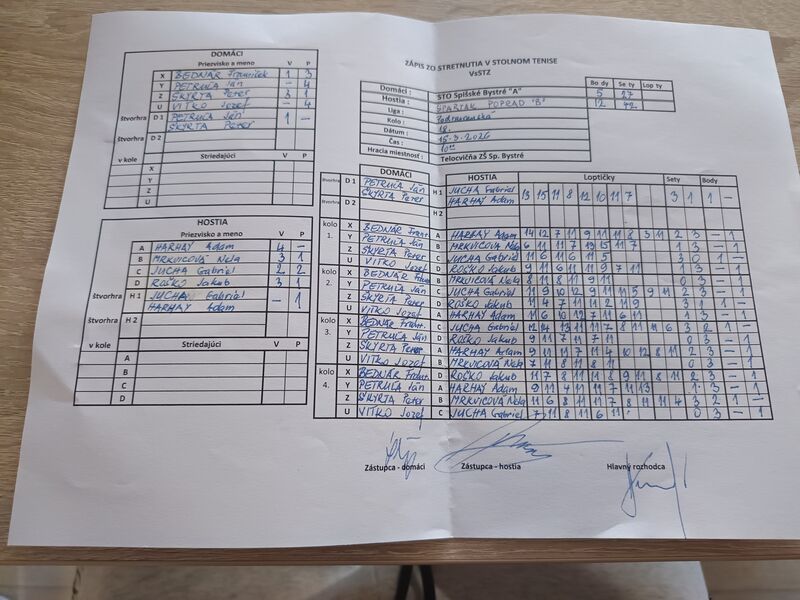 ZÁPIS ZO STRETNUTIA V STOLNOM TENISE
VsSTZ
DOMÁCI
Priezvisko a meno V P
X BEDNÁR František 1 3
Y PETRUĽA Ján – 4
Z ŠKYRTA Peter 3 1
U VITKO Jozef – 4
štvorhra D 1 PETRUĽA Ján 1 –
ŠKYRTA Peter
štvorhra D 2
v kole Striedajúci
X
Y
Z
U
HOSTIA
Priezvisko a meno V P
A HARHAY Adam 4 –
B MRKVICOVÁ Nela 3 1
C JUCHA Gabriel 2 2
D ROŠKO Jakub 3 1
štvorhra H 1 JUCHA Gabriel – 1
HARHAY Adam
štvorhra H 2
v kole Striedajúci
A
B
C
D
Bo dy Se ty Lop ty
Domáci : STO Spišské Bystré "A" 5 27
Hostia : SPARTAK POPRAD "B" 12 42
Liga : Podtatranská
Kolo : 18.
Dátum : 15.3.2026
Čas : 10
Hracia miestnosť : Telocvičňa ZŠ Sp. Bystré
DOMÁCI HOSTIA Loptičky Sety Body
štvorhra D 1 PETRUĽA Ján H 1 JUCHA Gabriel 13 15 11 8 12 10 11 7 3 1 1 –
ŠKYRTA Peter HARHAY Adam
štvorhra D 2 H 2
kolo 1. X BEDNÁR Fran. A HARHAY Adam 14 12 7 11 9 11 11 8 3 11 2 3 – 1
Y PETRUĽA Ján B MRKVICOVÁ Nela 6 11 11 7 13 15 11 7 1 3 – 1
Z ŠKYRTA Peter C JUCHA Gabriel 11 6 11 6 11 5 3 0 1 –
U VITKO Jozef D ROŠKO Jakub 9 11 6 11 11 9 7 11 1 3 – 1
kolo 2. X BEDNÁR B MRKVICOVÁ Nela 8 11 8 11 9 11 0 3 – 1
Y PETRUĽA Ján C JUCHA Gabriel 11 9 10 12 9 11 11 5 9 11 2 3 – 1
Z ŠKYRTA Peter D ROŠKO Jakub 11 4 7 11 11 2 11 9 3 1 1 –
U VITKO Jozef A HARHAY Adam
kolo 3. X BEDNÁR C JUCHA Gabriel 12 14 13 11 11 7 8 11 11 6 3 2 1 –
Y PETRUĽA Ján D ROŠKO Jakub 9 11 7 11 7 11 0 3 – 1
Z ŠKYRTA Peter A HARHAY Adam 9 11 11 7 11 4 10 12 8 11 2 3 – 1
U VITKO Jozef B MRKVICOVÁ Nela 7 11 8 11 8 11 0 3 – 1
kolo 4. X BEDNÁR D ROŠKO Jakub 11 7 8 11 11 8 9 11 8 11 2 3 – 1
Y PETRUĽA Ján A HARHAY Adam 9 11 4 11 11 7 11 13 1 3 – 1
Z ŠKYRTA Peter B MRKVICOVÁ Nela 11 6 8 11 11 7 8 11 11 4 3 2 1 –
U VITKO Jozef C JUCHA Gabriel 7 11 8 11 6 11 0 3 – 1
Zástupca - domáci Zástupca - hostia Hlavný rozhodca